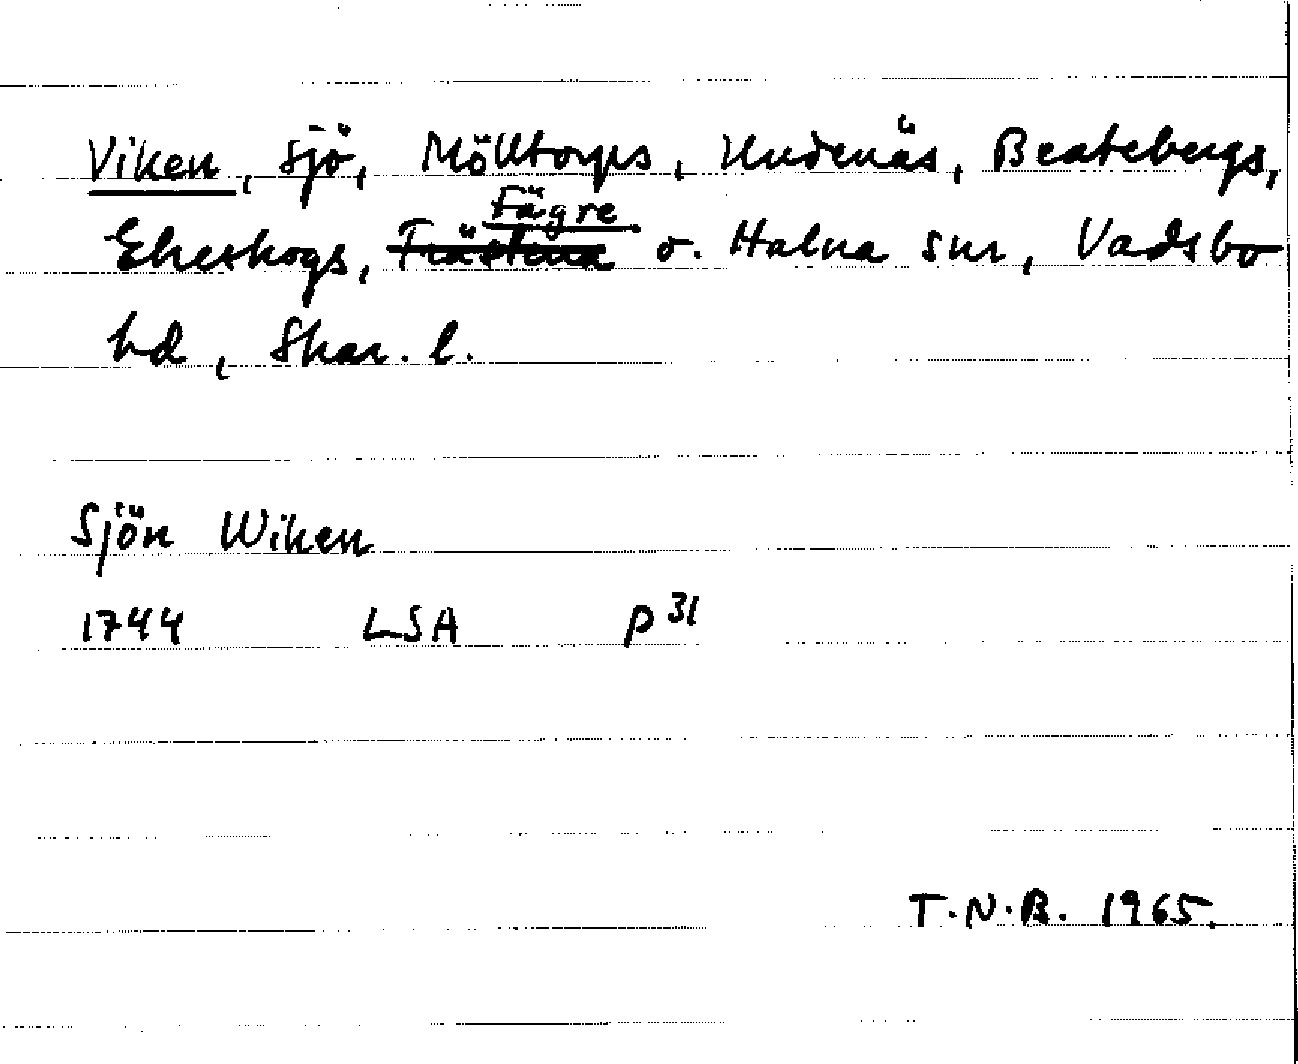 Viken, sjö, Mölltorps, Undenäs, Beatebergs,
Fägre
Ekeskogs, Trästena o. Halna snr, Vadsbo
hd, Skar. l.
Sjön Wiken
1744 LSA P 31
T.N.B. 1965.